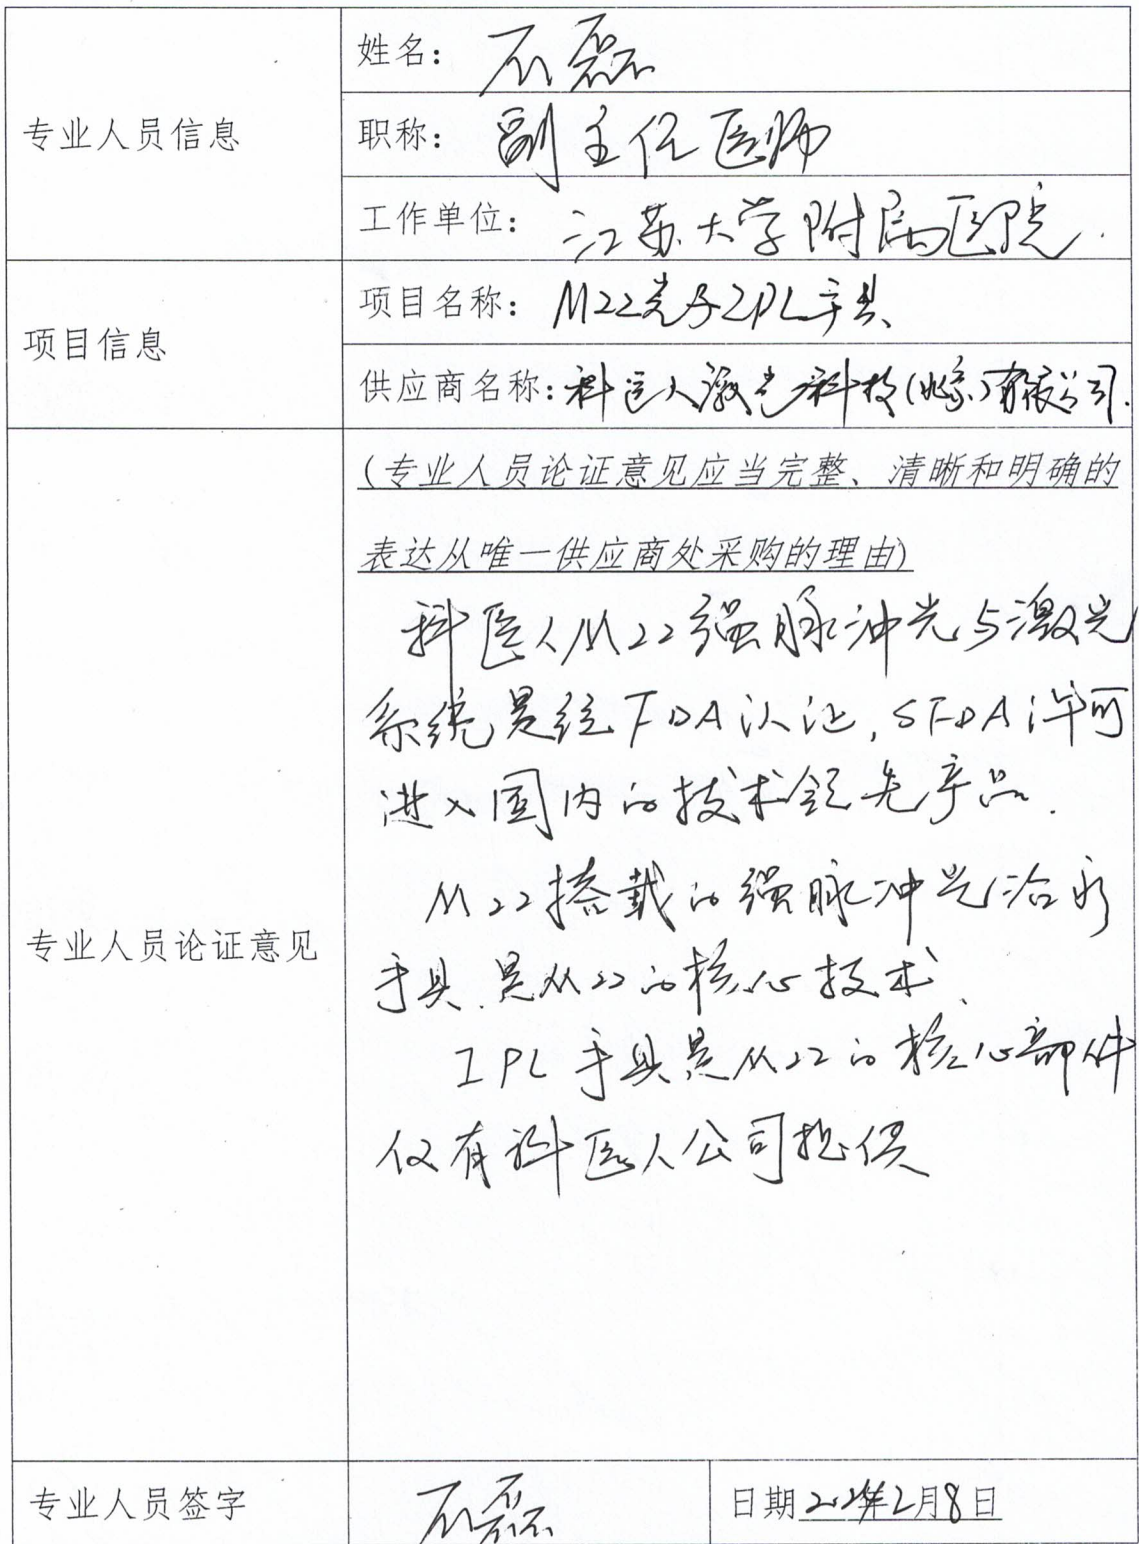 姓名：石磊
专业人员信息
职称：副主任医师
工作单位：江苏大学附属医院.
项目信息
项目名称：M22光子IPL手具
供应商名称：科医人激光科技(北京)有限公司.
(专业人员论证意见应当完整、清晰和明确的
表达从唯一供应商处采购的理由)
科医人M22强脉冲光与激光
系统是经FDA认证,SFDA许可
进入国内的技术领先产品.
M22搭载的强脉冲光治疗
专业人员论证意见
手具.是M22的核心技术.
IPL手具是M22的核心部件
仅有科医人公司提供
专业人员签字
石磊
日期 年2月8日